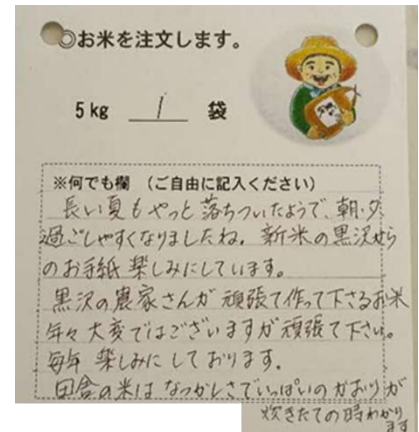 ◎お米を注文します。
5kg 1 袋
※何でも欄 (ご自由に記入ください)
長い夏もやっと落ちついたようで、朝・夕
過ごしやすくなりましたね。新米の黒沢から
のお手紙楽しみにしています。
黒沢の農家さんが頑張て作って下さるお米
年々大変ではございますが頑張て下さい。
毎年楽しみにしております。
田舎の米はなつかしさでいっぱいのかおりが
炊きたての時わかり
ます